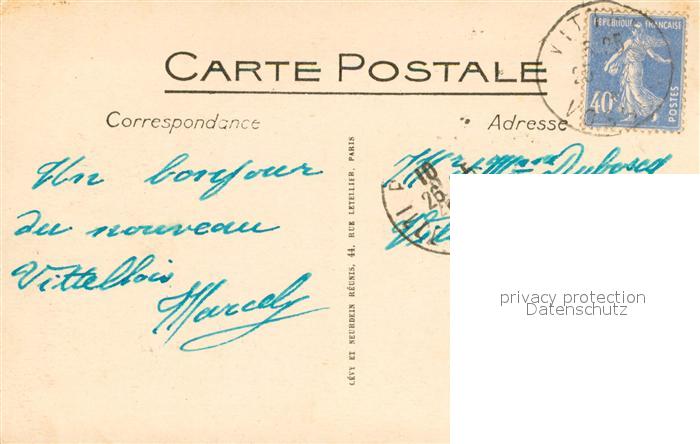 CARTE POSTALE
Correspondance
Adresse
REPUBLIQUE FRANÇAISE
40c
POSTES
VIT
Un bonjour
du nouveau
Vittellois
Marcel
Mr Mme Duboscq
18
26
LÉVY ET NEURDEIN RÉUNIS, 44, RUE LETELLIER, PARIS
privacy protection
Datenschutz